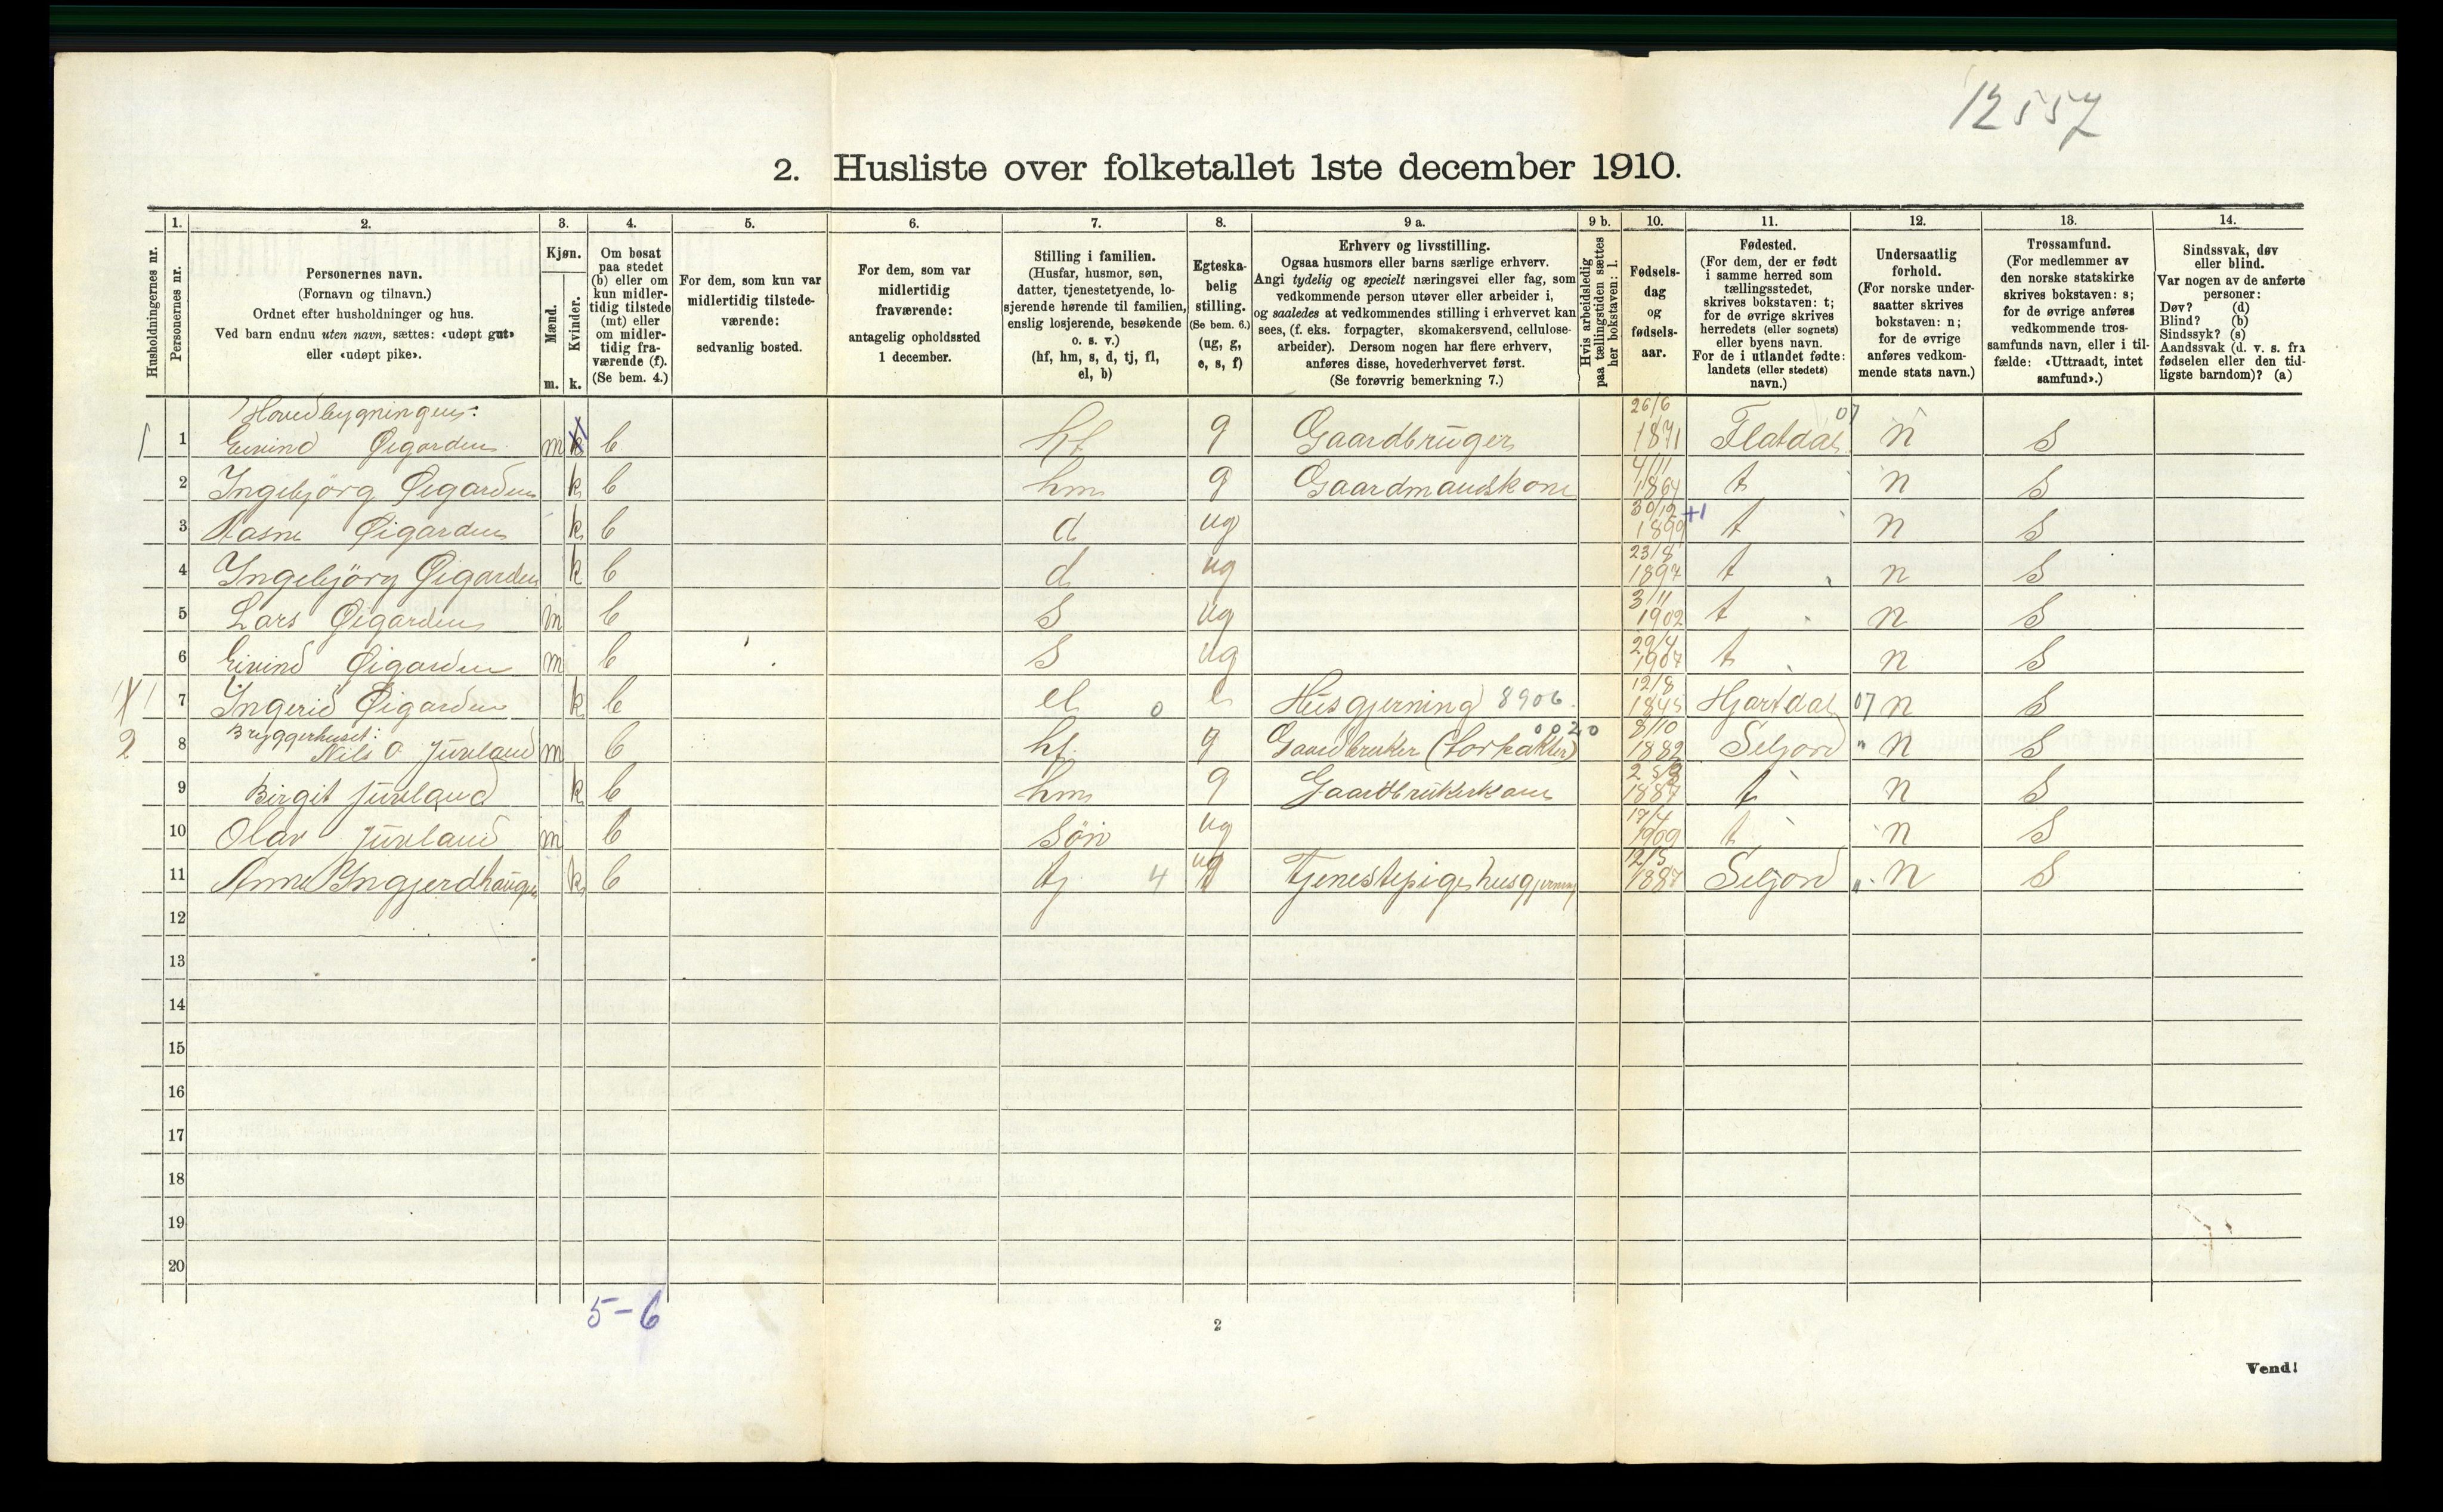 12557
2. Husliste over folketallet 1ste december 1910.
Husholdningernes nr.
1. Personernes nr.
2. Personernes navn.
(Fornavn og tilnavn.)
Ordnet efter husholdninger og hus.
Ved barn endnu uten navn, sættes: «udøpt gut»
eller «udøpt pike».
3. Kjøn.
Mænd. m.
Kvinder. k.
4. Om bosat
paa stedet
(b) eller om
kun midler-
tidig tilstede
(mt) eller
om midler-
tidig fra-
værende (f).
(Se bem. 4.)
5. For dem, som kun var
midlertidig tilstede-
værende:
sedvanlig bosted.
6. For dem, som var
midlertidig
fraværende:
antagelig opholdssted
1 december.
7. Stilling i familien.
(Husfar, husmor, søn,
datter, tjenestetyende, lo-
sjerende hørende til familien,
enslig losjerende, besøkende
o. s. v.)
(hf, hm, s, d, tj, fl,
el, b)
8. Egteska-
belig
stilling.
(Se bem. 6.)
(ug, g,
e, s, f)
9 a. Erhverv og livsstilling.
Ogsaa husmors eller barns særlige erhverv.
Angi tydelig og specielt næringsvei eller fag, som
vedkommende person utøver eller arbeider i,
og saaledes at vedkommendes stilling i erhvervet kan
sees, (f. eks. forpagter, skomakersvend, cellulose-
arbeider). Dersom nogen har flere erhverv,
anføres disse, hovederhvervet først.
(Se forøvrig bemerkning 7.)
9 b. Hvis arbeidsledig
paa tællingstiden sættes
her bokstaven: l.
10. Fødsels-
dag
og
fødsels-
aar.
11. Fødested.
(For dem, der er født
i samme herred som
tællingsstedet,
skrives bokstaven: t;
for de øvrige skrives
herredets (eller sognets)
eller byens navn.
For de i utlandet fødte:
landets (eller stedets)
navn.)
12. Undersaatlig
forhold.
(For norske under-
saatter skrives
bokstaven: n;
for de øvrige
anføres vedkom-
mende stats navn.)
13. Trossamfund.
(For medlemmer av
den norske statskirke
skrives bokstaven: s;
for de øvrige anføres
vedkommende tros-
samfunds navn, eller i til-
fælde: «Uttraadt, intet
samfund».)
14. Sindssvak, døv
eller blind.
Var nogen av de anførte
personer:
Døv? (d)
Blind? (b)
Sindssyk? (s)
Aandssvak (d. v. s. fra
fødselen eller den tid-
ligste barndom)? (a)
Hovedbygningen:
1 1 Eivind Øigarden m b hf g Gaardbruger 26/6 1871 Flatdal 07 n s
2 Ingebjörg Øigarden k b hm g Gaardmandskone 4/11 1864 t n s
3 Aasne Øigarden k b d ug 30/12 1899 +1 t n s
4 Ingebjörg Øigarden k b d ug 23/8 1897 t n s
5 Lars Øigarden m b s ug 3/11 1902 t n s
6 Eivind Øigarden m b s ug 29/4 1907 t n s
7 Ingerid Øigarden k b el 0 e Husgjerning 8906 12/8 1845 Hjartdal 07 n s
Bryggerhuset:
2 8 Nils O. Juvland m b hf g Gaardbruker (forpakter) 0020 8/10 1882 Seljord " n s
9 Birgit Juvland k b hm g Gaardbrukerkone 1887 t n s
10 Olav Juvland m b sön ug 17/4 1909 t n s
11 Anne Yngjerdhaugen k b tj 4 ug Tjenestepige husgjerning 12/5 1887 Seljord " n s
12
13
14
15
16
17
18
19
20
5-6
2
Vend!